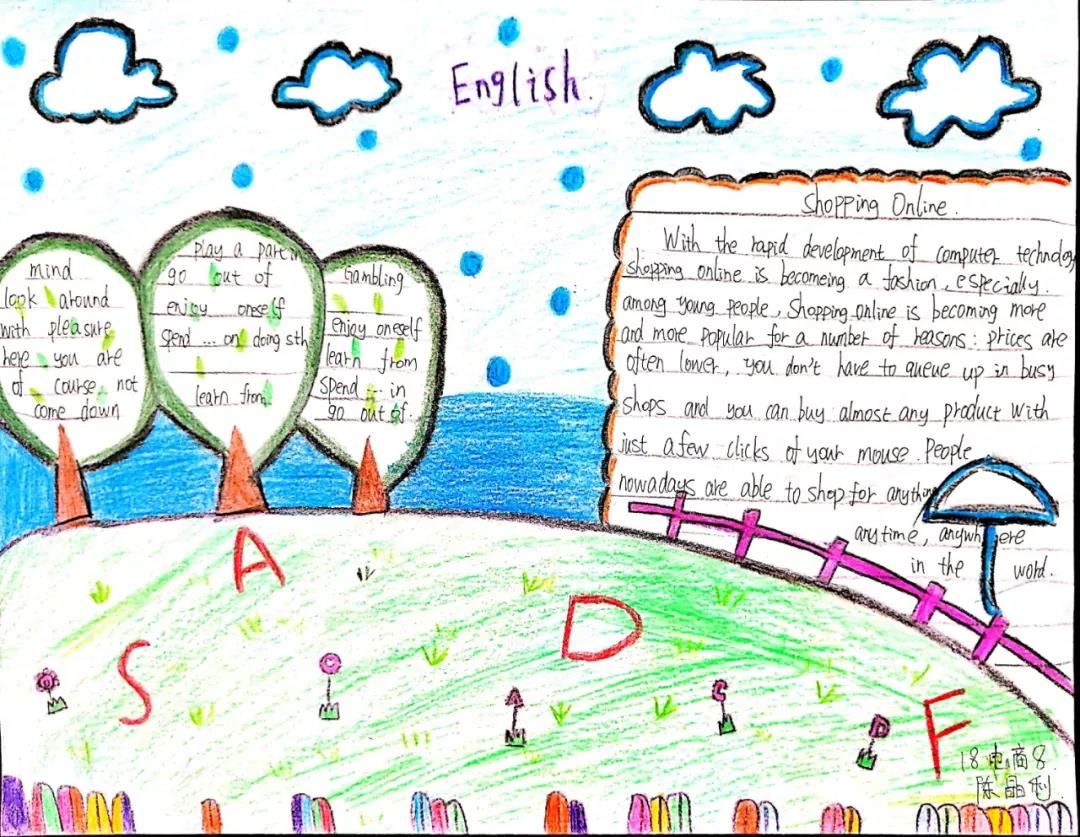 English.
mind
look around
with pleasure
here you are
of course not
come down
play a part in
go out of
enjoy oneself
spend ... on doing sth
learn from
Gambling
enjoy oneself
learn from
spend ... in
go out of.
Shopping Online.
With the rapid development of computer technology
shopping online is becomeing a fashion, especially.
among young people, Shopping online is becoming more
and more popular for a number of reasons: prices are
often lower, you don't have to queue up in busy
shops and you can buy almost any product with
just a few clicks of your mouse. People
nowadays are able to shop for anything
anytime, anywhere
in the word.
A
S
D
F
A
C
D
18电商8
陈晶利